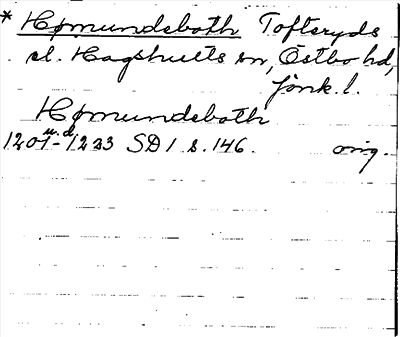 * Hømundsboth Tofteryds
el. Hagshults sn, Östbo hd,
Jönk. l.
Hømundsboth
u. d.
1201-1233 SD 1 s. 146. orig.